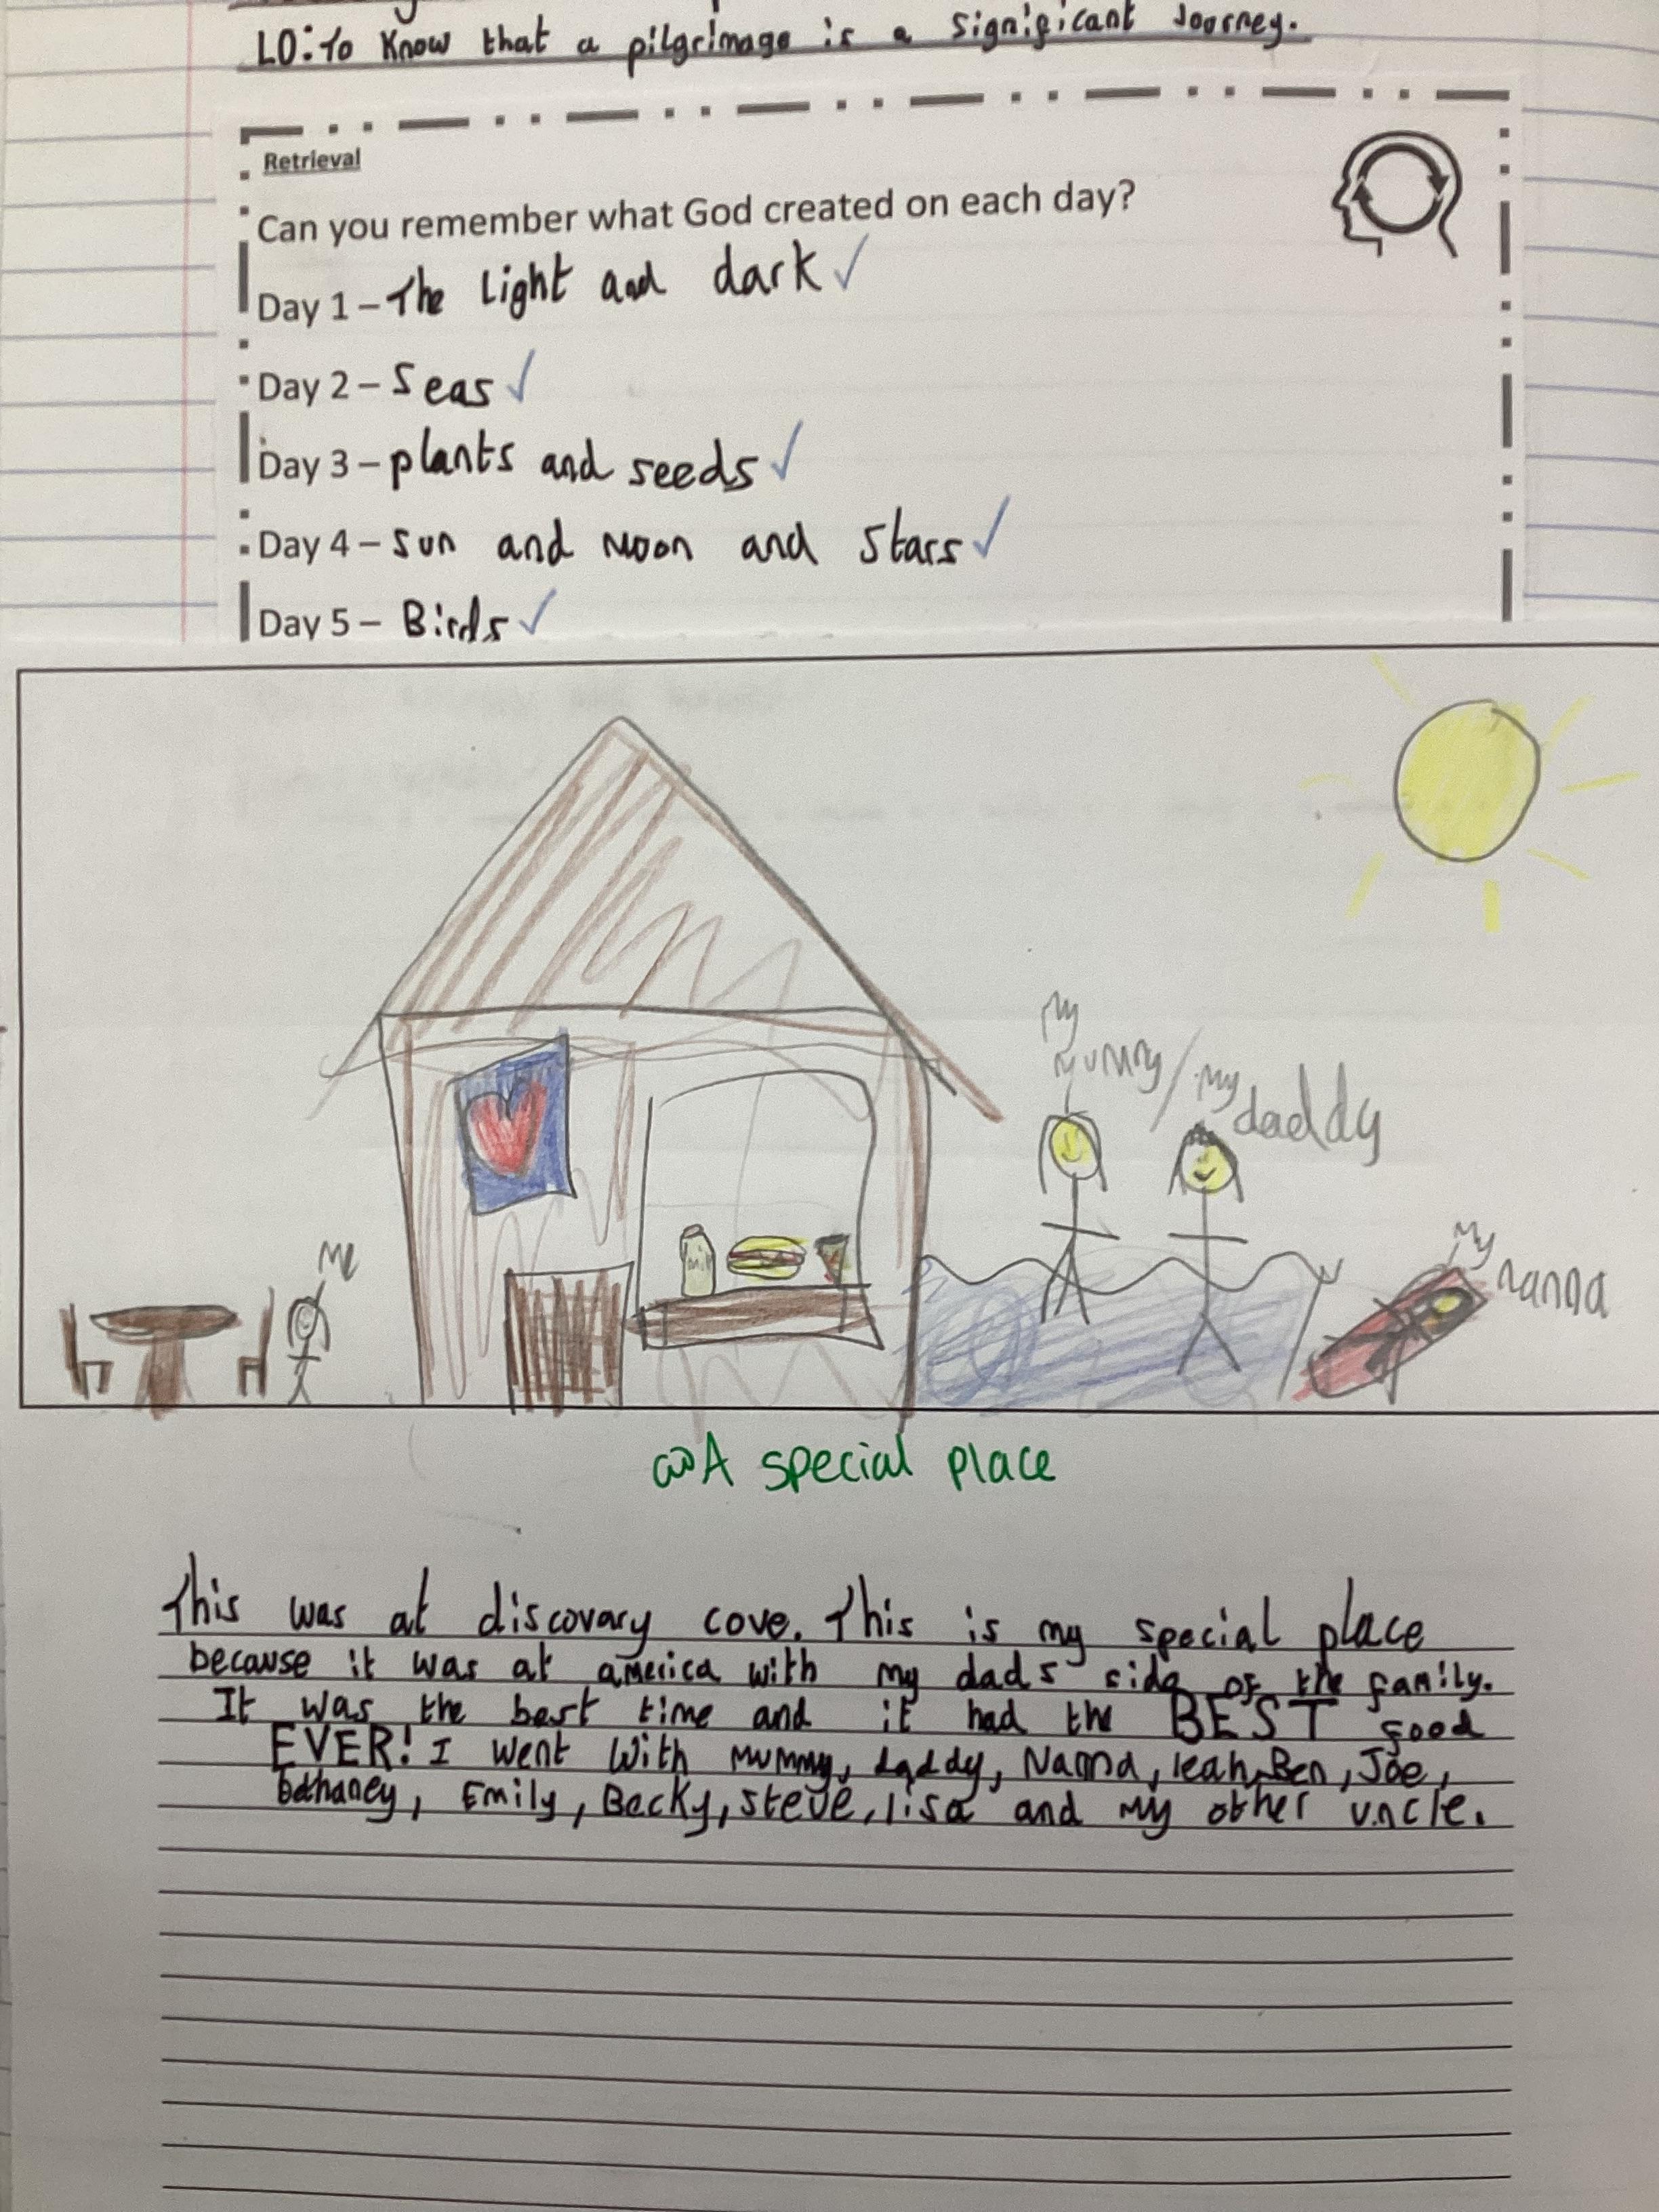 LO: To Know that a pilgrimage is a significant Journey.
Retrieval
Can you remember what God created on each day?
Day 1 – The Light and dark ✓
Day 2 – Seas ✓
Day 3 – plants and seeds ✓
Day 4 – Sun and Moon and Stars ✓
Day 5 – Birds ✓
My
Mummy / My
daddy
Me
My
nanna
milk
A special place
This was at discovary cove. This is my special place
because it was at america with my dads side of the family.
It was the best time and it had the BEST food
EVER! I went With Mummy, daddy, Nanna, leah, Ben, Joe,
bethaney, Emily, Becky, Steve, lisa and my other uncle.